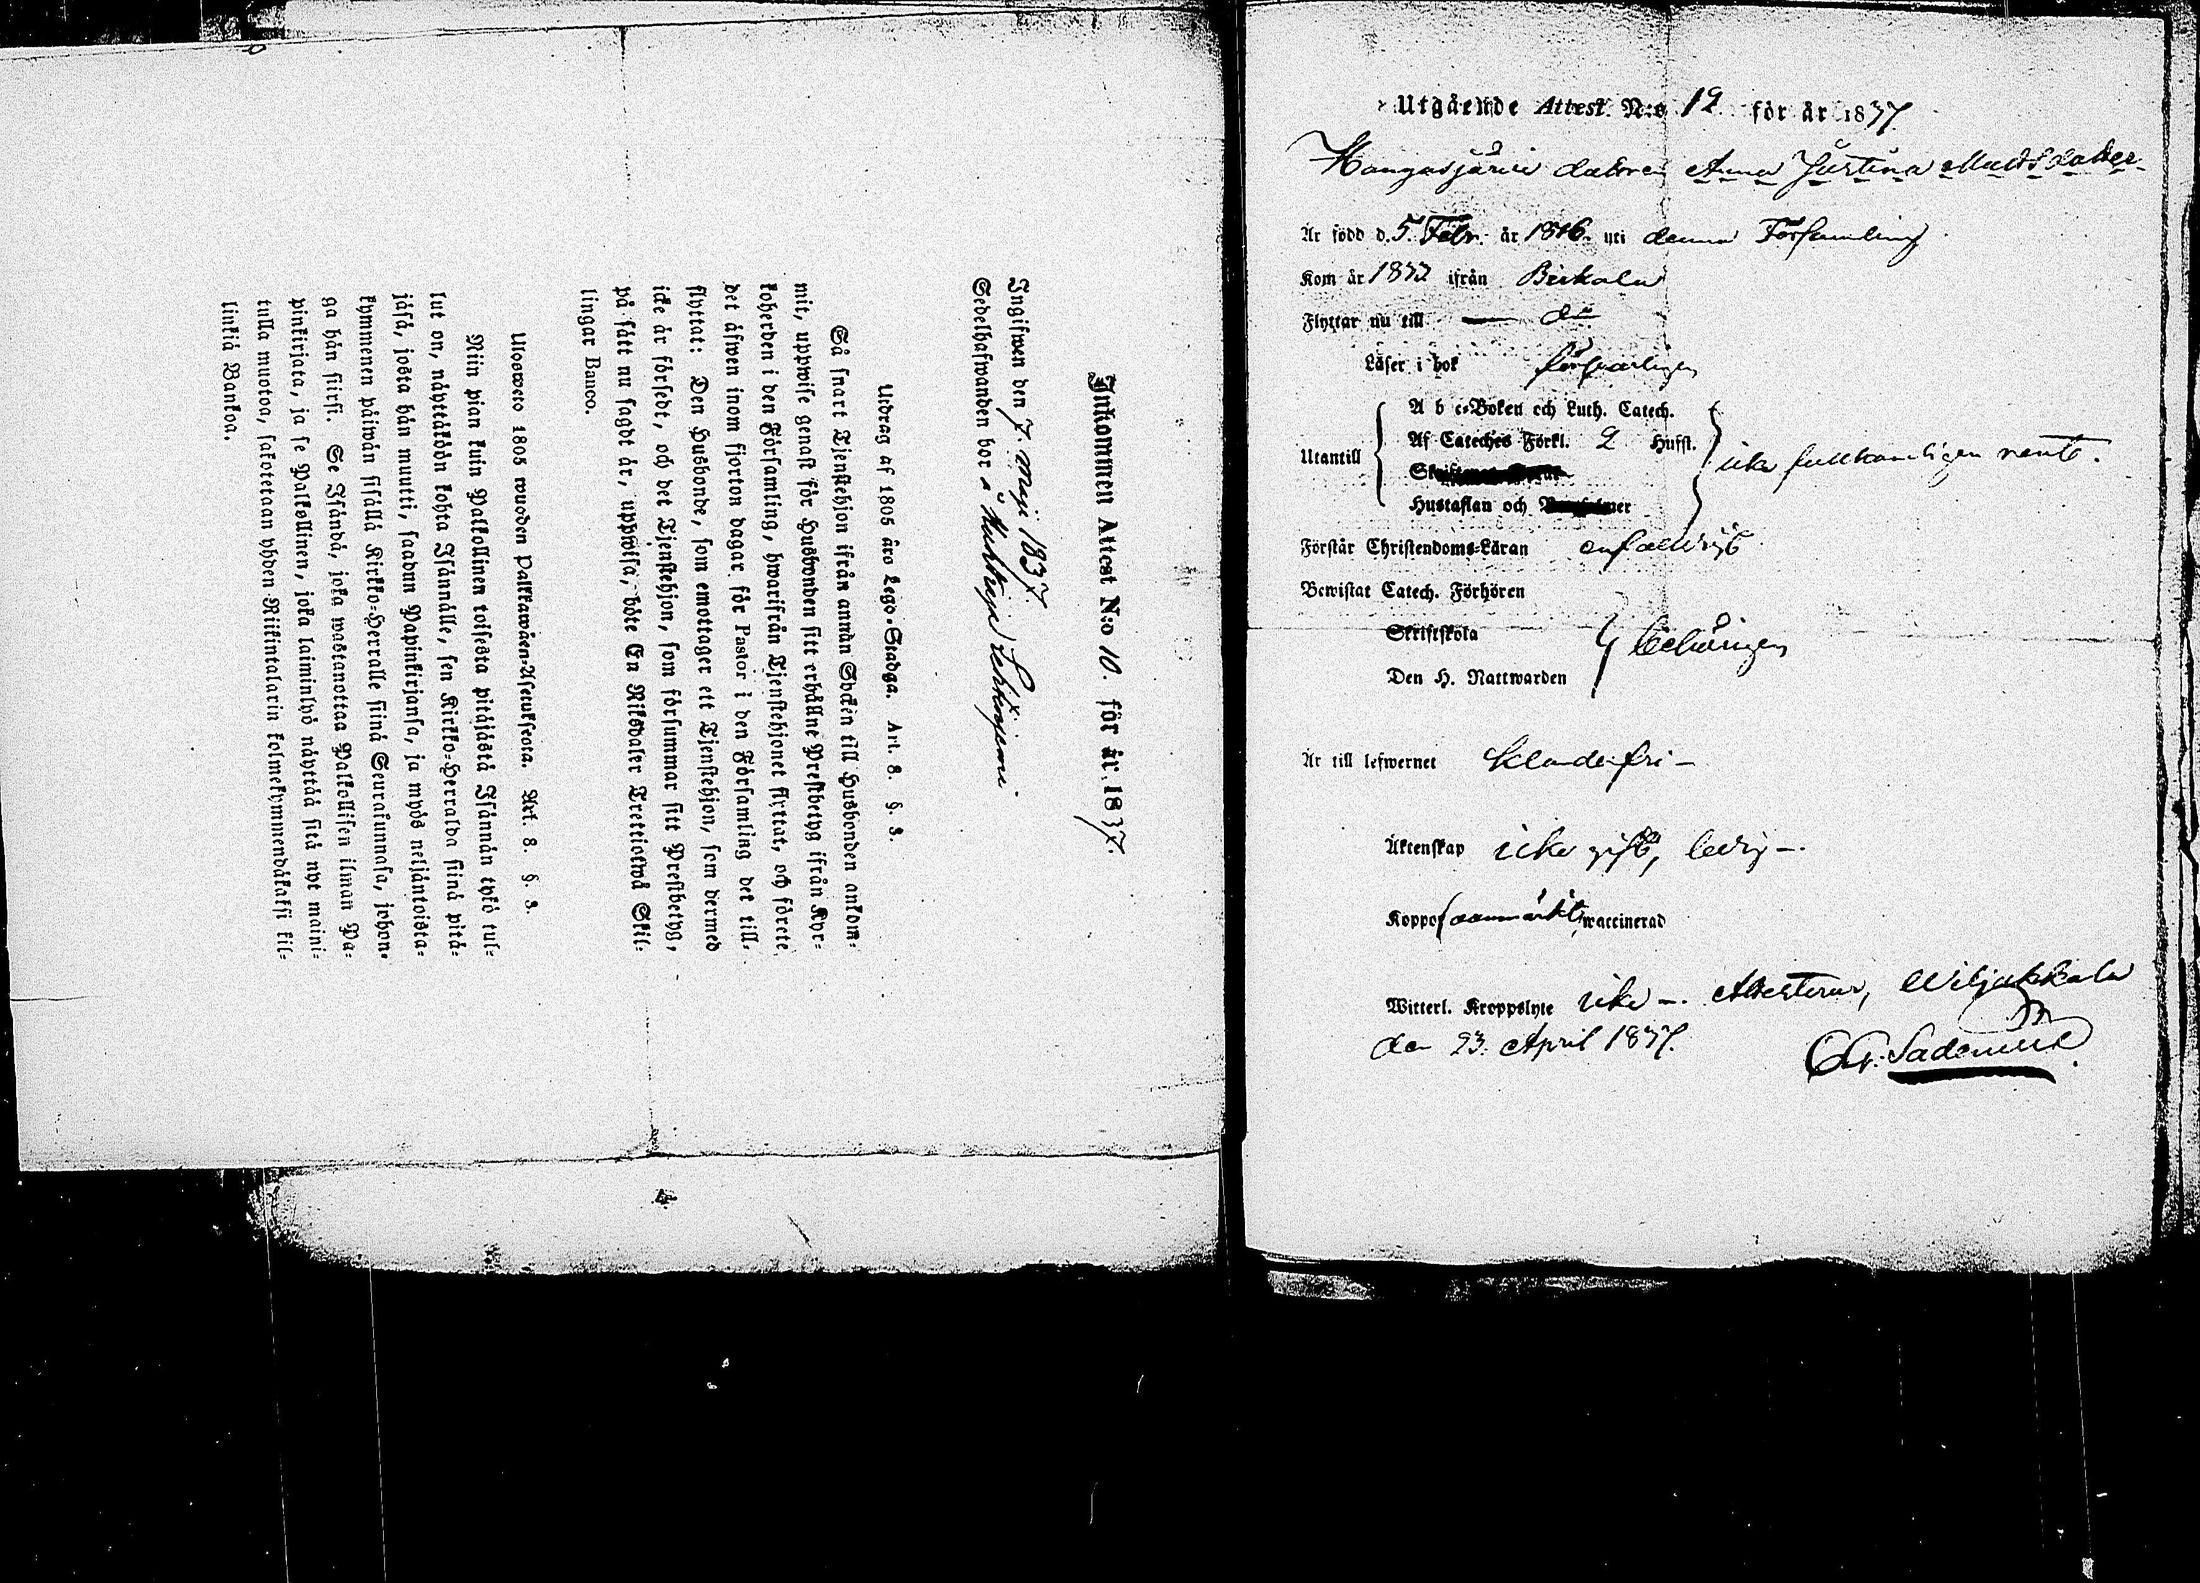 Inkommen Attest N:o 10. för år 1837.
Ingifwen den 7. Maji 1837.
Sedelhafwanden bor å
Utdrag af 1805 års Lego-Stadga. Art. 8. §. 3.
Så snart Tjenstehjon ifrån annan Socken till Husbonden ankom-
mit, uppwise genast för Husbonden sitt erhållne Prestbetyg ifrån Kyr-
koherden i den Församling, hwarifrån Tjenstehjonet flyttat, och förete
det äfwen inom fjorton dagar för Pastor i den Församling det till-
flyttat: Den Husbonde, som emottager ett Tjenstehjon, som dermed
icke är försedt, och det Tjenstehjon, som försummar sitt Prestbetyg,
på sätt nu sagdt är, uppwisa, böte En Riksdaler Trettiotwå Skil-
lingar Banco.
Ulosweto 1805 wuoden Palkkawäen-Asetuksesta. Art. 8. §. 3.
Niin pian kuin Palkollinen toisesta pitäjästä Isännän tykö tul-
lut on, näyttäkön kohta Isännälle, sen Kirkko-Herralda siinä pitä-
jäsä, josta hän muutti, saadun Papinkirjansa, ja myös neljäntoista-
kymmenen päiwän sisällä Kirkko-Herralle siinä Seurakunnasa, johon-
ga hän siirsi. Se Isändä, joka wastanottaa Palkollisen ilman Pa-
pinkirjata, ja se Palkollinen, joka laiminlyö näyttää sitä nyt maini-
tulla muotoa, sakotetaan yhden Riikintalarin kolmekymmendäkaksi kil-
linkiä Bankoa.
Utgående Attest N:o 12 för år 1837
Kangasjärvi dottren Anna Justina Matts dotter
Är född d. 5. Febr. år 1816 uti denna Församling
Kom år 1832 ifrån Birkala
Flyttar nu till do
Läser i bok försvarligen
Utantill
A b c-Boken och Luth. Catech.
Af Cateches Förkl. 2 Hufst.
Hustaflan och
icke fullkomligen
Förstår Christendoms-Läran enfaldigt
Bewistat Catech. Förhören
Skriftskola
Den H. Nattwarden
behörigen
Är till lefwernet klanderfri -
Äktenskap icke gift, ledig -.
waccinerad
Witterl. Kroppslyte icke -. Attesterar, Wiljakkala
den 23. April 1837.